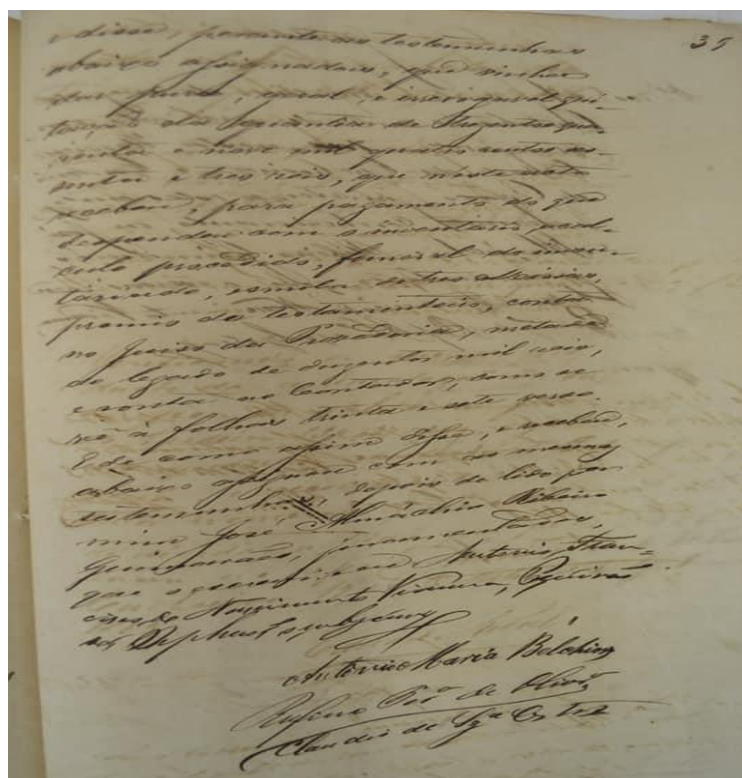 35
e disse, perante as testemunhas
abaixo assignadas, que vinha
dar pura, geral, e irrevogavel qui-
tação da quantia de duzentos qua-
renta e nove mil quatro centos se-
senta e tres reis, que neste acto
recebeu, para pagamento do que
despendeu com o inventario,
procedido, funeral do inven-
tariado, esmola de tres
premio de testamenteiro, contas
no Juizo da Provedoria, metade
do legado de duzentos mil reis,
e conta ao Contador, como se
vê á folhas trinta e sete verso.
E de como assim disse, e recebeu,
abaixo assigna com as mesmas
testemunhas, depois de lido por
mim José Ribeiro
Guimarães, juramentado,
que o escrevi, e eu Antonio Fran-
cisco do Nascimento Escrivão
de Orphaos, o subscrevy
Antonio Maria Belchior
Rufino de Olivrª
Claudio de